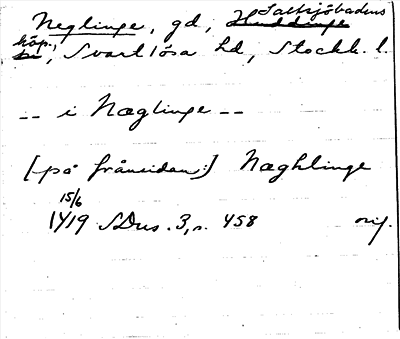 Neglinge, gd, Saltsjöbadens
köp., Svartlösa hd, Stockh. l.
-- i Næglinge --
[på frånsidan:] Næghlinge
15/6
1419 SDns. 3, s. 458 orig.